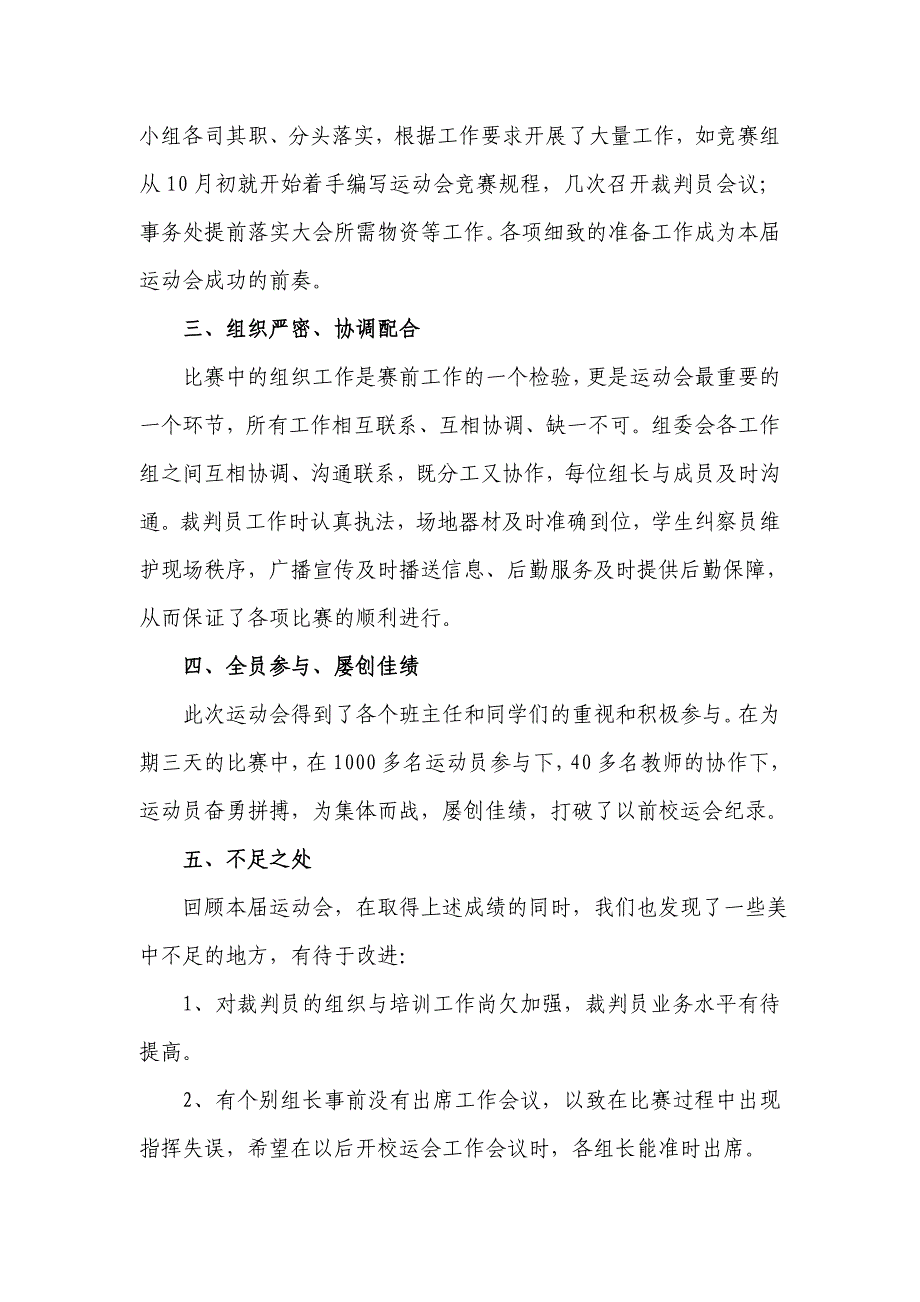 小组各司其职、分头落实，根据工作要求开展了大量工作，如竞赛组
从 10 月初就开始着手编写运动会竞赛规程，几次召开裁判员会议；
事务处提前落实大会所需物资等工作。各项细致的准备工作成为本届
运动会成功的前奏。
三、组织严密、协调配合
比赛中的组织工作是赛前工作的一个检验，更是运动会最重要的
一个环节，所有工作相互联系、互相协调、缺一不可。组委会各工作
组之间互相协调、沟通联系，既分工又协作，每位组长与成员及时沟
通。裁判员工作时认真执法，场地器材及时准确到位，学生纠察员维
护现场秩序，广播宣传及时播送信息、后勤服务及时提供后勤保障，
从而保证了各项比赛的顺利进行。
四、全员参与、屡创佳绩
此次运动会得到了各个班主任和同学们的重视和积极参与。在为
期三天的比赛中，在 1000 多名运动员参与下，40 多名教师的协作下，
运动员奋勇拼搏，为集体而战，屡创佳绩，打破了以前校运会纪录。
五、不足之处
回顾本届运动会，在取得上述成绩的同时，我们也发现了一些美
中不足的地方，有待于改进：
1、对裁判员的组织与培训工作尚欠加强，裁判员业务水平有待
提高。
2、有个别组长事前没有出席工作会议，以致在比赛过程中出现
指挥失误，希望在以后开校运会工作会议时，各组长能准时出席。